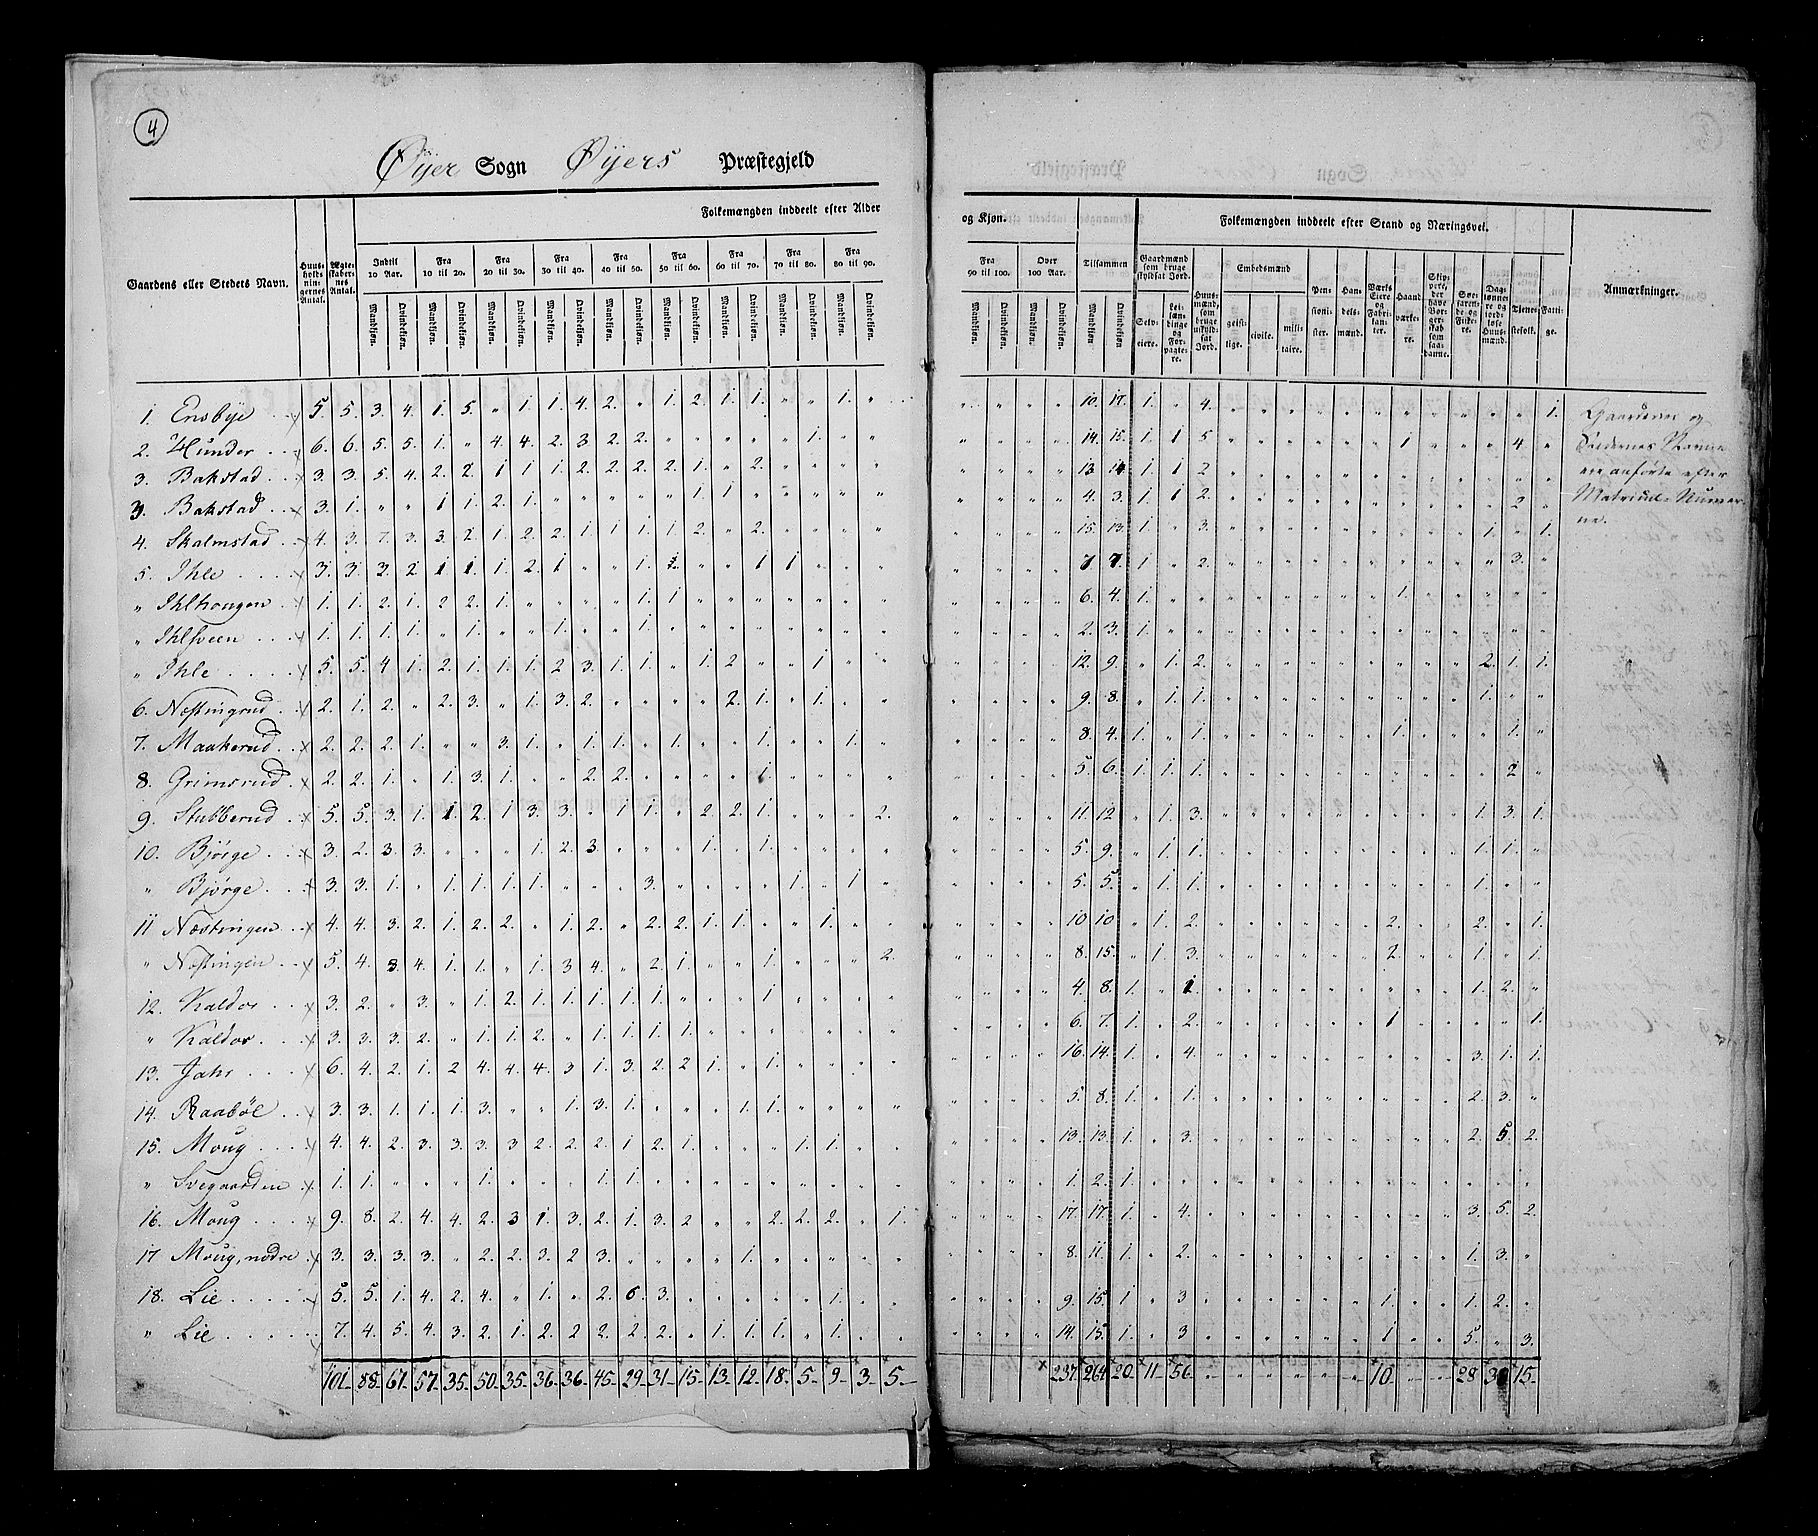 4
Öijer Sogn Öijers Præstegjeld
Folkemængden inddeelt efter Alder
og Kjøn.
Folkemængden inddeelt efter Stand og Næringsvei.
Gaardens eller Stedets Navn.
Huusholdningernes Antal.
Ægteskabernes Antal.
Indtil 10 Aar.
Fra 10 til 20.
Fra 20 til 30.
Fra 30 til 40.
Fra 40 til 50.
Fra 50 til 60.
Fra 60 til 70.
Fra 70 til 80.
Fra 80 til 90.
Fra 90 til 100.
Over 100 Aar.
Tilsammen
Mandkjøn. Qvindekjøn.
Gaardmænd som bruge skyldsat Jord.
Selveiere.
Leilændinge og Forpagtere.
Huusmænd, som bruge uskyldsat Jord.
Embedsmænd
geistlige. civile. militaire.
Pensionister.
Handelsmænd.
Værks Eiere og Fabrikanter.
Haandværkere.
Skippere, der have Borgerskab som saadanne.
Søefarende og Fiskere.
Daglønnere og jordløse Huusmænd.
Tjenestefolk.
Fattige.
Anmærkninger.
1. Ensbye 5. 5. 3. 4. 1. 5. " 1. 1. 4. 2. " 1. 2. 1. 1. " " 1. " 10. 17. 1. " 4. 1.
2. Hunder 6. 6. 5. 5. 1. " 4. 4. 2. 3. 2. 2. " " " " " 1. " " 14. 15. 1. 1 5 1 4. "
3. Bakstad 3. 3. 5. 4. 2. 2. 1 1 1. 2. 2. 2. 2. 1. " 2. " " " " 13. 14. 1. 1 2.
3. Bakstad 3. 1. " " 1 1. 2. 1. 1. 1. 4. 3. 1. 1 2. 2 "
4. Skalmstad 4. 3. 7. 3. 3. 2. 1. 2. 2. 1. 1. 1. 1. 2. " 2. 15. 13. 1. " 3. 1. " 1.
5. Ihle 3. 3. 3. 2. 1 1. 1. 2. 1 " " 1. 1. " " 1 1 7 7. 1. " 2. 3. "
" Ihlhougen 1. 1. 2. 1. 2 2. 1. " " " " 1. 1. 6. 4. 1. 1.
" Ihlsveen 1. 1. 1. 1. " 1. " " 1. " " 1. 2. 3. 1.
" Ihle 5. 5. 4. 1. 2. 1. 1. 1. 2. 3. 1. 1. " 1. 2 " " 1. 12. 9. " 1. 2. 2. 1. 1.
6. Næstingrud 2. 1. 2. " 2. 3. " 1. 3. 2. " " " " 2. 1. " 1. 9. 8. " 1. 1. 1. " "
7. Maakerud 2. 2. 2. 1. " " 3. 1. " 1. 1. " 1. " " 1. " " 1. " 8. 4. 1. 1. 1. 1. "
8. Grimsrud 2. 2. 1. " 1. 3. 1. " " 2. 2. " " " " 1. 5. 6. 1. 1. 1. 2 "
9. Stubberud 5. 5. 3. 1. 1 2. 1 3. 3. " 1 1. " 2. 2. 1. " " " 2. 11. 12 " 1. 3. 1. 3. 1.
10. Bjørge 3. 2. 3. 3. " " " 1. 2. 3. " " " 1. " 1. 5. 9. " 1. 1. 1. 1. "
" Bjørge 3. 3. 1. " 1. 1. 1. 1. " " " 3. " " " " 1. " 1 " 5. 5. " 1. 1. 1. " "
11 Næstingen 4. 4. 3. 2. 1. 2. 2. " 1. 2. " 2. 2. 1. 1. " " 1. " " 10 10 " 1. 2. 2. 2. " 1.
" Næstingen 5. 4. 3. 4. 1. 1. " 1. 3 4. " 2. 1. " " 1. " " " 2. 8. 15. " 1. 3. 2. 1. " 1.
12. Kaldor 3. 2. " 3. " 1. 2. 1. 1. 1. 1. 1. " " " 1 4. 8. 1. " 1. 1. 2. "
" Kaldor 3. 3. 3. 2. " 1. 1. 2. " 1. 1. 1. 1. 6. 7. 1. " 2. 1 1.
13. Jahr 6. 4. 2. 1. 2 4. 4. 4. 3 1. 3. 2. 2 1. " 1. 16. 14. 1. " 4. 3. 1. 1.
14. Raabøl 3. 3. 1. 1. 1. 3. " " 1. 3. 1. " " " 1. 1. 5. 8. 1. " 1. 2. 3. "
15. Moug 4. 4. 2. 3. 3. 3. 3 2. 2. 2. 1 2. 1. " " " 1. 1. 13. 13. 1. " 3. 2. 5. 2.
" Svegaarden 1. 1. " " " 1. " " " 1. 1. 1. 2. 1
16. Moug 9. 8. 2. 4. 4. 2. 3 1. 3. 2. 1. 3. 2 " " 2. 2. 2. " 1. 17. 17. 1. " 4. 3. 5. 2.
17 Moug, nedre 3. 3. 3. 3. " 2. 2. 3. 2 3. " " " " 1. 8. 11. 1. " 2. 1. 3. "
18. Lie 5. 5. 1. 4. 2. 4. " 1. " 2. 6. 3. " " " " " 1. 9. 15. 1 " 3 1. 1. 2. "
" Lie 7. 4. 5. 4. 3. 2. 1. 2. 2 2. 2. 2. " 1. 1. 1. " 1. 14. 15. 1. " 3 1 5. " 3.
101. 88. 67. 57. 35. 50. 35. 36. 36. 45. 29. 31. 15. 13. 12. 18. 5. 9. 3. 5. 237. 264. 20. 11. 56. 10. 28 15.
Gaardenes og
Stedernes Navne
ere anførte efter
Matricul-Numer-
ne.